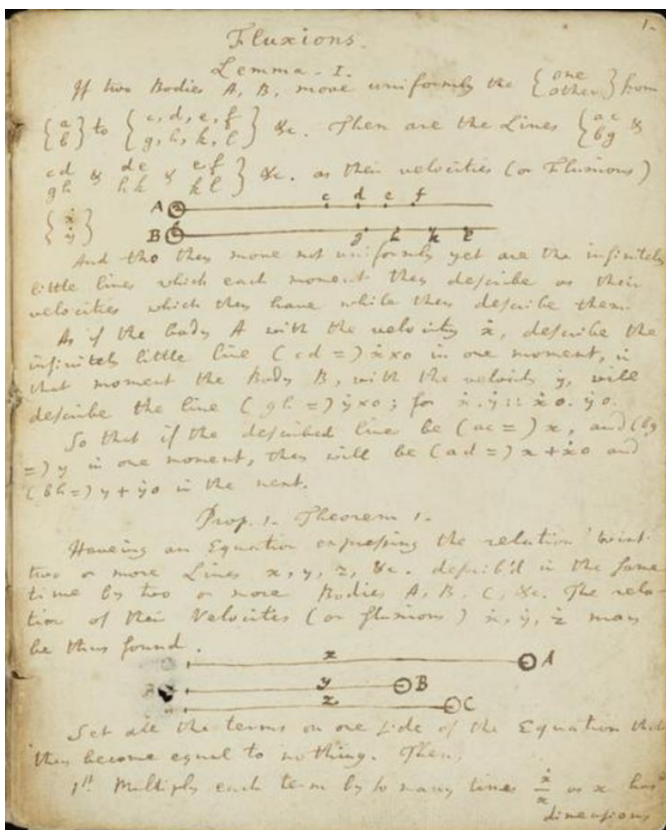 1.
Fluxions.
Lemma - I.
If two Bodies A, B, move uniformly the { one other } from
{ a b } to { c, d, e, f g, h, k, l } &c. Then are the Lines { ac bg &
cd gh & de hk & ef kl } &c. as their velocities (or Fluxions)
{ ẋ ẏ }
A c d e f
B g h k l
And tho they move not uniformly yet are the infinitely
little lines which each moment they describe as their
velocities which they have while they describe them.
As if the body A with the velocity ẋ, describe the
infinitely little line (cd =) ẋ×o in one moment, in
that moment the Body B, with the velocity ẏ, will
describe the line (gh =) ẏ×o; for ẋ.ẏ :: ẋo.ẏo.
So that if the described lines be (ac =) x, and (bg
=) y in one moment, they will be (ad =) x + ẋo and
(bh =) y + ẏo in the next.
Prop. 1. Theorem 1.
Haveing an Equation expressing the relation twixt
two or more Lines x, y, z, &c. describ'd in the same
time by two or more Bodies A, B, C, &c. The rela-
tion of their Velocities (or fluxions) ẋ, ẏ, ż may
be thus found.
x A
y B
z C
Set all the terms on one side of the Equation that
they become equal to nothing. Then,
1st Multiply each term by so many times ẋ/x as x has
dimensions